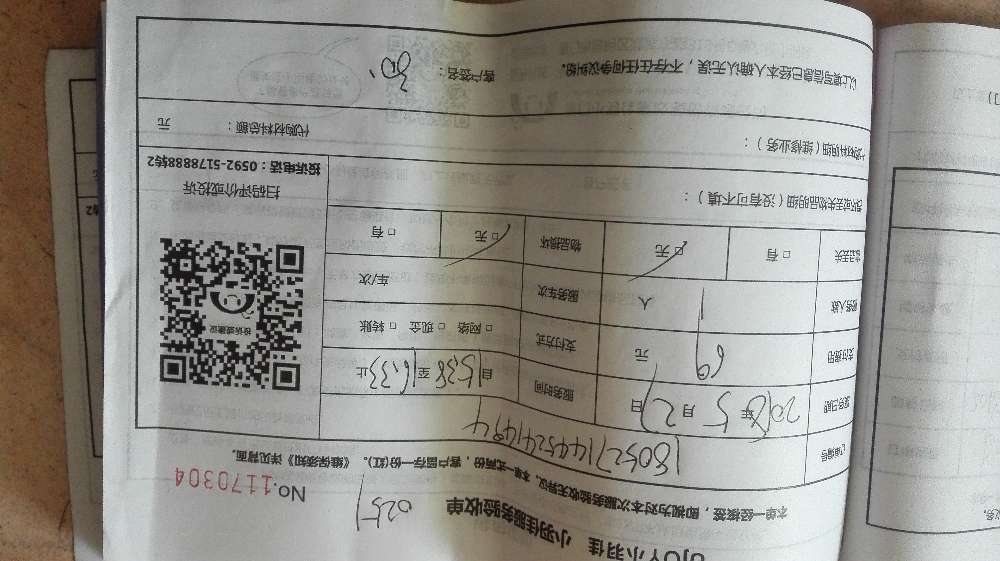 小羽佳 小羽佳服务验收单
0251
No.1170304
本单一经接签，即视为对本次服务验收无异议。本单一式两份，客户留存一份(红)。《维保须知》详见背面。
订单编号 180527144524149 4
服务日期 2018年5月27日 服务时间 自15:38至16:33止
支付费用 69元 支付方式 □网络 □现金 □转账
服务人数 1人 服务车次 车/次
物品丢失 □有 □无 物品损坏 □无 □有
损坏或丢失物品明细（没有可不填）：
代购材料明细（维修业务）：
代购材料总额： 元
以上填写信息已经本人确认无误，不存在任何争议纠纷。
客户签名：
投诉或建议
扫码评价或投诉
投诉电话：0592-5178888转2